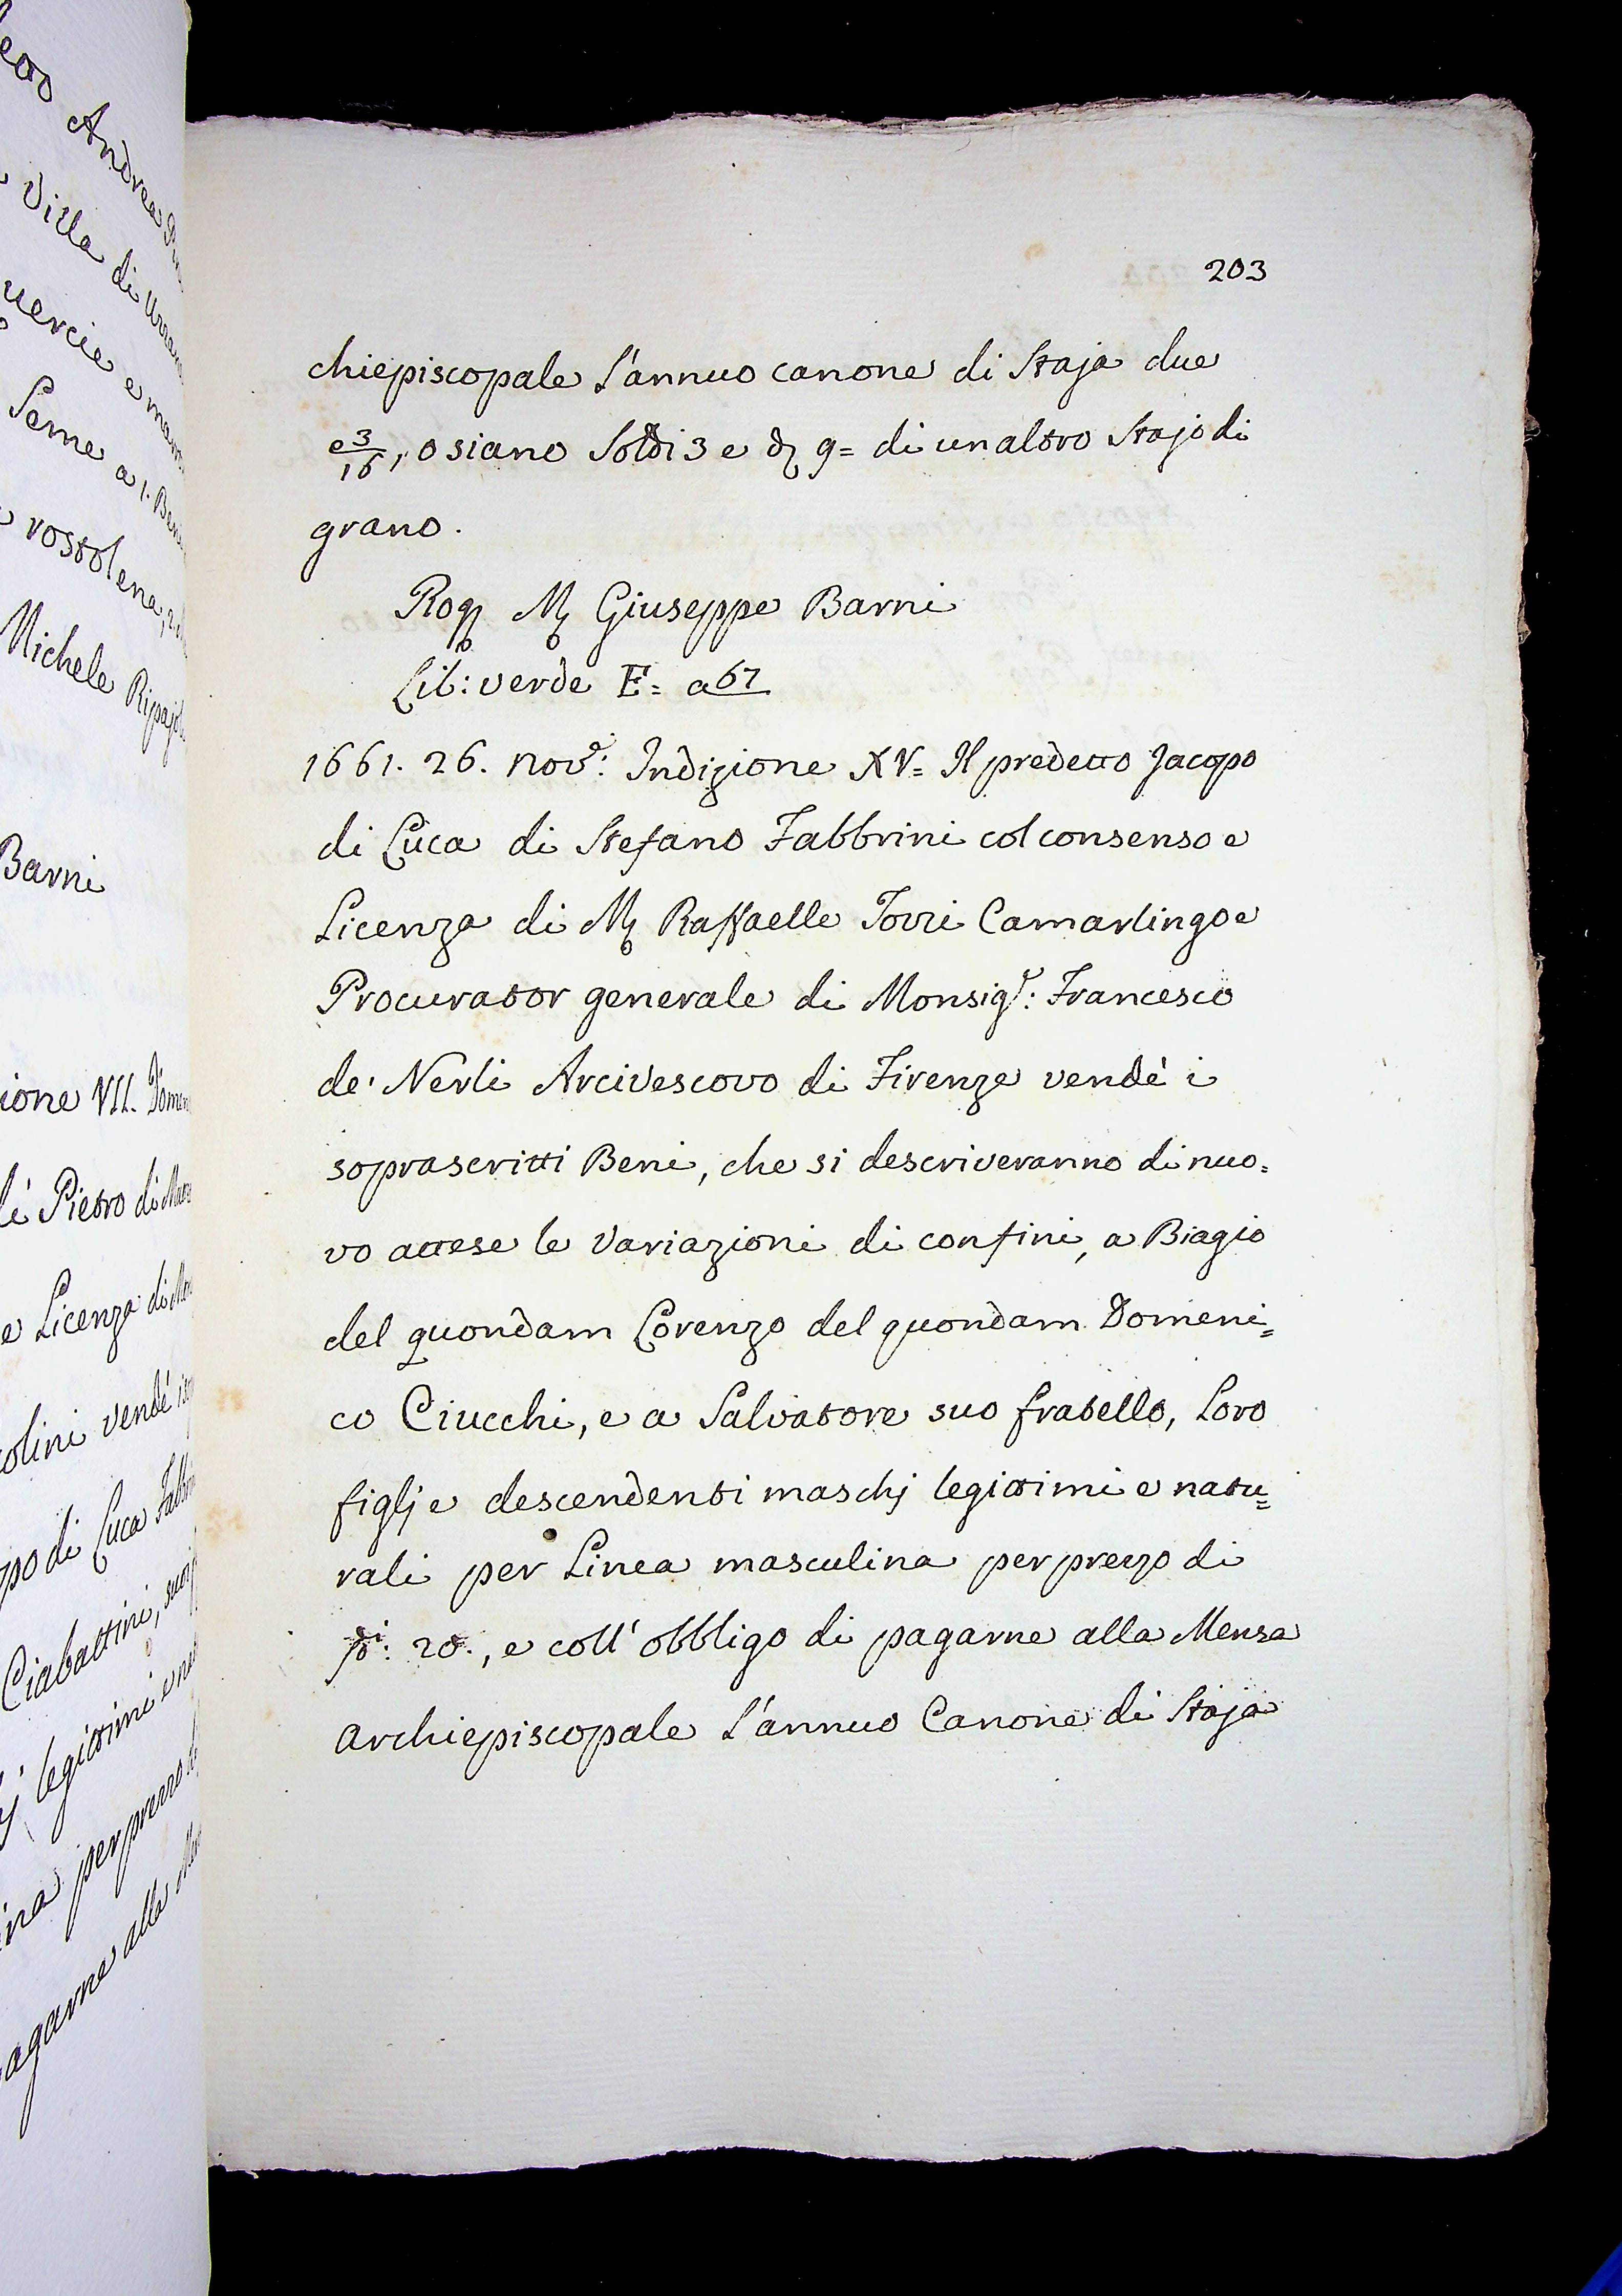 203
chiepiscopale l'annuo canone di Staja due
e 3/16, o siano Soldi 3 e d 9= di un altro Stajo di
grano.
Rog M Giuseppe Barni
Lib: verde E= a 67
1661. 26. Nov: Indizione XV= Il predetto Jacopo
di Luca di Stefano Fabbrini col consenso e
Licenza di M Raffaelle Torri Camarlingo e
Procurator generale di Monsigr: Francesco
de' Nerli Arcivescovo di Firenze vendè i
soprascritti Beni, che si descriveranno di nuo=
vo attese le Variazioni di confini, a Biagio
del quondam Lorenzo del quondam Domeni=
co Ciucchi, e a Salvatore suo fratello, Loro
figlj e descendenti maschj legittimi e natu=
rali per Linea masculina per prezzo di
20., e coll' obbligo di pagarne alla Mensa
Archiepiscopale l'annuo Canone di Staja
Andrea
Villa di
uercie e
Seme a 1.
rossolena,
Michele
Barni
ione VII.
Pietro di
e Licenza di
olini vendé
po di Luca
Ciabattini,
j legittimi e
ina per prezzo
agarne alla